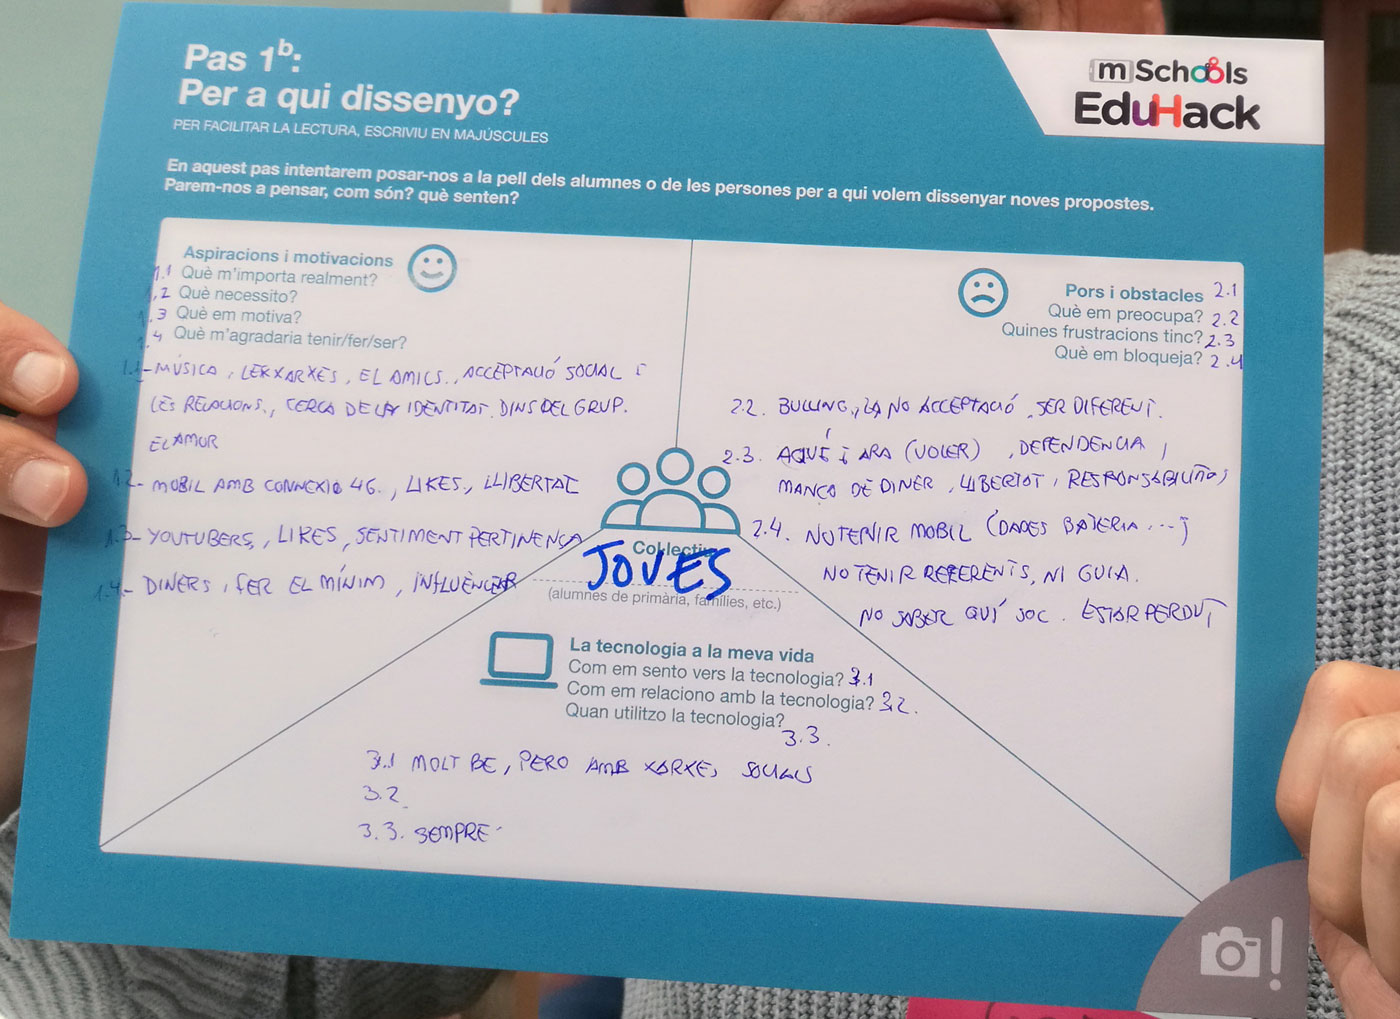 Pas 1b:
Per a qui dissenyo?
PER FACILITAR LA LECTURA, ESCRIVIU EN MAJÚSCULES
mSchools
EduHack
En aquest pas intentarem posar-nos a la pell dels alumnes o de les persones per a qui volem dissenyar noves propostes.
Parem-nos a pensar, com són? què senten?
Aspiracions i motivacions
1.1 Què m'importa realment?
1.2 Què necessito?
1.3 Què em motiva?
1.4 Què m'agradaria tenir/fer/ser?
1.1- MÚSICA, LERXARXES, EL AMICS., ACCEPTACIÓ SOCIAL I
LES RELACIONS., CERCA DE LA IDENTITAT. DINS DEL GRUP.
EL AMOR
1.2- MOBIL AMB CONNEXIO 4G., LIKES., LLIBERTAT
1.3- YOUTUBERS, LIKES, SENTIMENT PERTINENSA
1.4- DINERS, FER EL MÍNIM, INFLUÈNCER
Pors i obstacles 2.1
Què em preocupa? 2.2
Quines frustracions tinc? 2.3
Què em bloqueja? 2.4
2.2. BULLING, LA NO ACCEPTACIÓ, SER DIFERENT.
2.3. AQUÍ I ARA (VOLER), DEPENDENCIA,
MANCA DE DINER, LLIBERTAT, RESPONSABILITAT
2.4. NO TENIR MOBIL (DADES BATERIA ...)
NO TENIR REFERENTS, NI GUIA.
NO SABER QUÍ SOC. ESTAR PERDUT
Col·lectiu
JOVES
(alumnes de primària, famílies, etc.)
La tecnologia a la meva vida
Com em sento vers la tecnologia? 3.1
Com em relaciono amb la tecnologia? 3.2.
Quan utilitzo la tecnologia?
3.3.
3.1 MOLT BE, PERO AMB XARXES SOCIALS
3.2.
3.3. SEMPRE